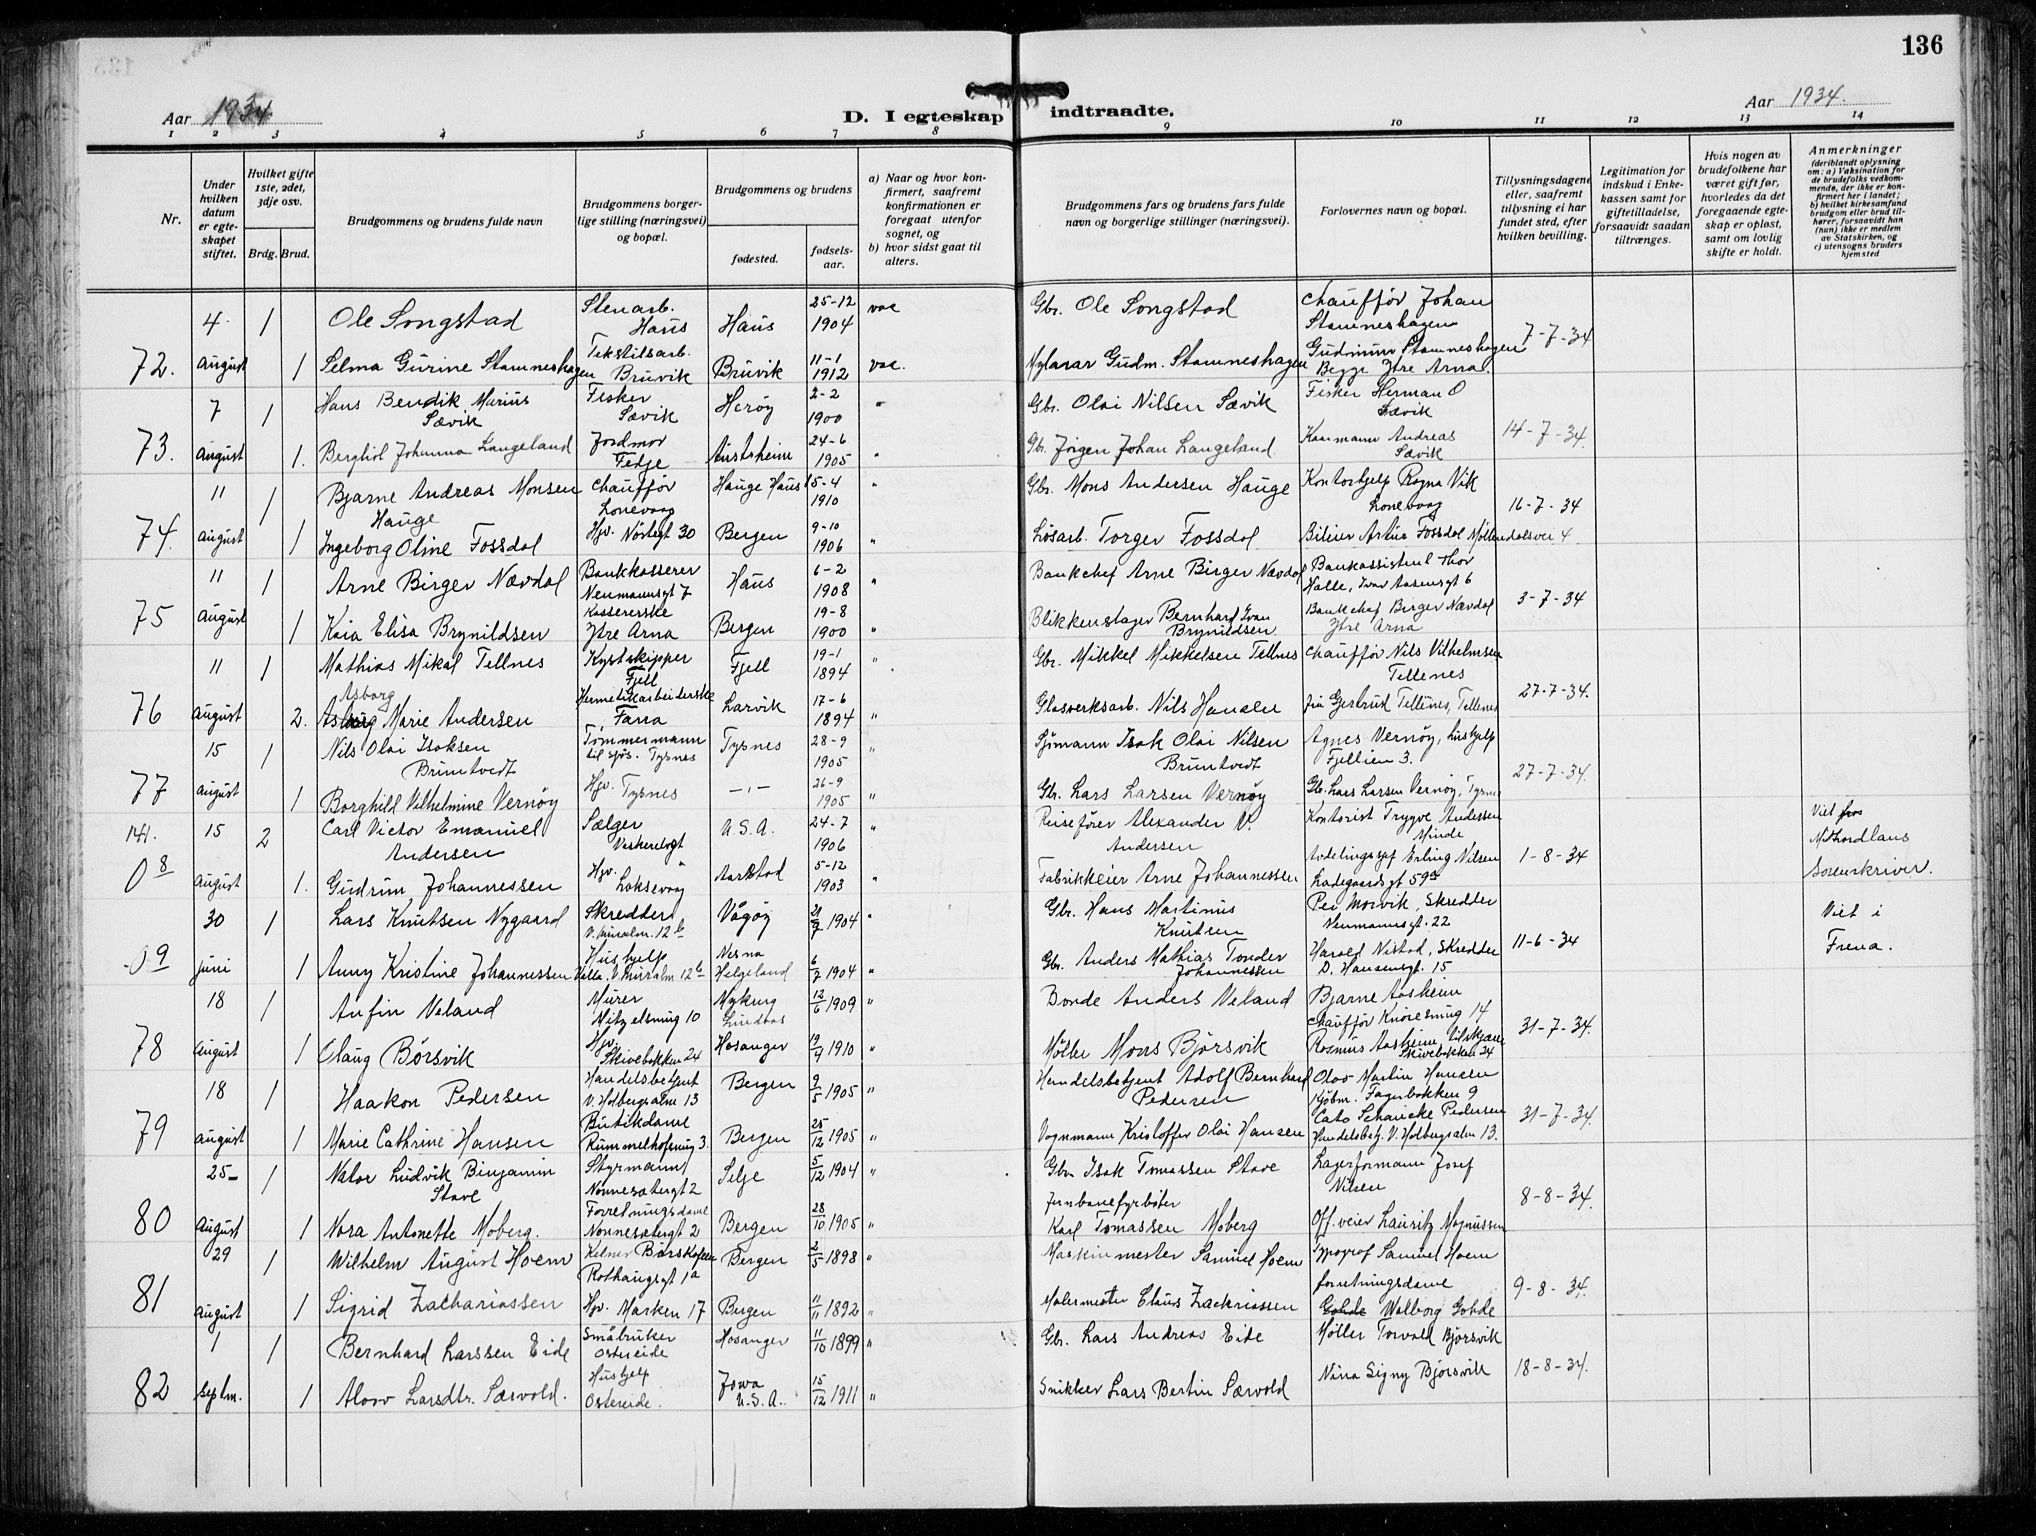 136
Aar 1934
D. I egteskap indtraadte.
Aar 1934.
1 2 3 4 5 6 7 8 9 10 11 12 13 14
Nr.
Under hvilken datum er egteskapet stiftet.
Hvilket gifte 1ste, 2det, 3dje osv.
Brdg. Brud.
Brudgommens og brudens fulde navn
Brudgommens borgerlige stilling (næringsvei) og bopæl.
Brudgommens og brudens
fødested.
fødselsaar.
a) Naar og hvor konfirmert, saafremt konfirmationen er foregaat utenfor sognet, og
b) hvor sidst gaat til alters.
Brudgommens fars og brudens fars fulde navn og borgerlige stillinger (næringsvei).
Forlovernes navn og bopæl.
Tillysningsdagene eller, saafremt tillysning ei har fundet sted, efter hvilken bevilling.
Legitimation for indskud i Enkekassen samt for giftetilladelse, forsaavidt saadan tiltrænges.
Hvis nogen av brudefolkene har været gift før, hvorledes da det foregaaende egteskap er opløst, samt om lovlig skifte er holdt.
Anmerkninger
(deriblandt oplysning om: a) Vaksination for de brudefolks vedkommende, der ikke er konfirmert her i landet; b) hvilket kirkesamfund brudgom eller brud tilhører, forsaavidt han (hun) ikke er medlem av Statskirken, og c) utensogns bruders hjemsted
4. 1 Ole Songstad Stenarb. Haus Haus 25-12 1904 vac Gbr. Ole Songstad Chauffør Johan Stamneshagen
7-7-34
72. August 1 Selma Gurine Stamneshagen Tekstilarb. Bruvik Bruvik 11-1 1912 vac. Gudm. Stamneshagen Gudmund Stamneshagen Begge Ytre Arna.
7 1 Hans Bendik Marius Sævik Fisker Sævik Herøy 2-2 1900 " Gbr. Olai Nilsen Sævik Fisker Herman O Sævik
14-7-34.
73. August 1. Berghol Johanna Langeland Jordmor Fedje Austrheim 24-6 1905 " Gbr. Jørgen Johan Langeland. Andreas Sævik
11 1 Bjarne Andreas Monsen Hauge Chauffør Lonevaag Hauge Haus 15-4 1910 " Gbr. Mons Andersen Hauge Kontorhjelp Ragna Vik Lonevaag
16-7-34
74. August 1 Ingeborg Oline Fossdal Hjv. Nøstegt 30 Bergen 9-10 1906 " Løsarb. Torger Fossdal Bileier Artur Fossdal Møllendalsvei 4
11 1 Arne Birger Nævdal Bankkasserer Neumannsgt 7 Haus 6-2 1908 " Bankchef Arne Birger Nævdal Bankassistent Thor Halle, Ivar Aasensgt 6
3-7-34
75 August 1 Kaia Elisa Brynildsen Kassererske Ytre Arna Bergen 19-8 1900 " Blikkenslager Bernhard Ivan Brynildsen Bankchef Birger Nævdal Ytre Arna
11 1 Mathias Mikal Tellnes Kystskipper Fjell Fjell 19-1 1894 " Gbr. Mikkel Mikkelsen Tellnes Chauffør Nils Vilhelmsen Tellenes
27-7-34.
76 August 2. Asborg Marie Andersen Hermetikarbeiderske Fana Larvik 17-6 1894 " Glasverksarb. Nils Hansen fru Gjertrud Tellenes, Tellenes
15 1 Nils Olai Isaksen Bruntvedt Tømmermann til sjøs. Tysnes Tysnes 28-9 1905 " Sjømann Isak Olai Nilsen Bruntvedt Agnes Vernøy, hushjelp Fjellien 3.
27-7-34.
77 August 1 Borghild Vilhelmine Vernøy Hjv. Tysnes -"- 26-9 1905 " Gbr. Lars Larsen Vernøy Gb. Lars Larsen Vernøy, Tysnes
141. 15 2 Carl Victor Emanuel Andersen Sælger U.S.A. 24-7 1906 " Reisefører Alexander V. Andersen Kontorist Trygve Andersen Minde
1-8-34
Viet hos Midhordland Sorenskriver.
08 August 1. Gudrun Johannessen Hjv. Loksevaag Aarstad 5-12 1903 " Fabrikkeier Arne Johannessen Avdelingssjef Erling Nilsen Ladegaardsgt 59a
30 1 Lars Knutsen Nygaard Skredder V. Muralm. 12b Vågøy 21/7 1904 " Gbr. Hans Martinus Knutsen Per Morvik, Skredder Neumannsgt. 22
11-6-34
Viet i Frena.
09 juni 1 Anny Kristine Johannessen Hushjelp Villa. V. Muralm 12b Nesna Helgeland 6/7 1904 " Gbr. Anders Mathias Tonder Johannessen Harald Nistad, Skredder D. Hansensgt. 15
18 1 Anfin Veland Murer Mitzelsmug 10 Nykirug Lindaas 12/6 1909 " Bonde Anders Veland Bjarne Aasheim Chauffør Knøsesmug 14
31-7-34.
78 August 1 Olaug Børsvik Hjv. Skivebakken 24 Hosanger 19/9 1910 " Møller Mons Bjørsvik Rasmus Aasheim, Skivebakken 24
18 1 Haakon Pedersen Handelsbetjent V. Holbergsalm 13 Bergen 9/5 1905 " Handelsbetjent Adolf Bernhard Pedersen Olav Martin Hansen Kjøbm. Fagerbakken 9
31-7-34.
79 August 1 Marie Cathrine Hansen Butikdame Rummelhoffsmug 3. Bergen 25/12 1905 " Vognmann Kristoffer Olai Hansen Cato Schancke Pedersen Handelsbetj. V. Holbergsalm 13.
25- 1 Nator Ludvik Binjamin Stave Styrmann Nonnesætergt 2 Selje 5/12 1904 " Gbr Isak Tomassen Stave Lagerformann Josef Nilsen
8-8-34.
80 August 1 Nora Antonette Moberg. Forretningsdame Nonnesætergt 2 Bergen 28/10 1905 " Jernbanefyrbøter Karl Tomassen Moberg Off. veier Lauritz Magnussen
29 1 Wilhelm August Hoem Kelner Børskafeen Rothaugsgt 1a Bergen 2/5 1898 " Maskinmester Samuel Hoem Typograf Samuel Hoem
9-8-34.
81 August 1 Sigrid Zachariassen Hjv. Marken 17 Bergen 11/11 1892 " Malermester Claus Zackriassen forretningsdame Gohde Walborg Gohde
1 1 Bernhard Larssen Eide Småbruker Ostereide Hosanger 11/10 1899 " Gbr. Lars Andreas Eide Møller Torvald Bjørsvik
18-8-34.
82 Septm. 1 Alaav Larsdtr. Særvold. Hushjelp Ostereide. Jowa U.S.A. 15/12 1911 " Snikker Lars Bertin Særvold Nina Signy Bjørsvik